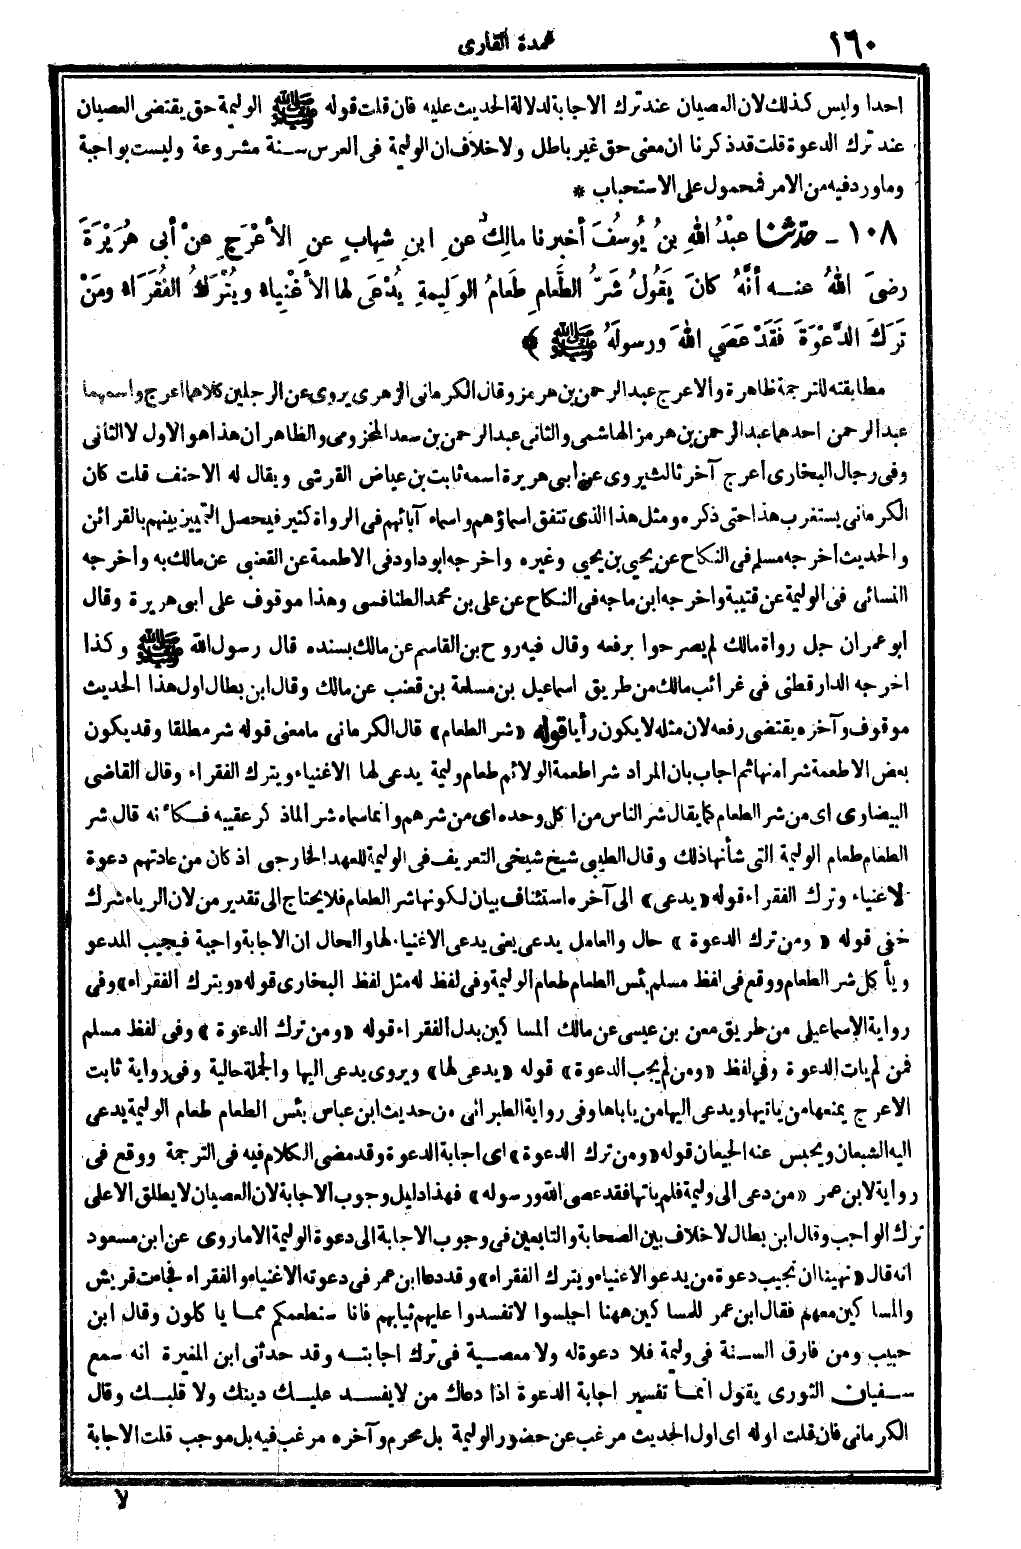 ١٦٠
عمدة القارى
احدا وليس كذلك لان العصيان عند ترك الاجابة لدلالة الحديث عليه فان قلت قوله ﷺ الوليمة حق يقتضى العصيان
عند ترك الدعوة قلت قد ذكرنا ان معنى حق غير باطل ولا خلاف ان الوليمة فى العرس سنة مشروعة وليست بواجبة
وما ورد فيه من الامر فمحمول على الاستحباب *
١٠٨ ـ حدّثنا عبْدُ اللهِ بنُ يُوسُفَ أخبرنا مالِكٌ عنِ ابنِ شِهابٍ عنِ الأعْرَجِ عنْ أبى هُرَيْرَةَ
رضىَ اللهُ عنه أنَّهُ كانَ يَقُولُ شَرُّ الطَّعامِ طَعامُ الوَلِيمةِ يُدْعَى لها الأغْنِياء ويُتْرَكُ الفُقَرَاء ومَنْ
تَرَكَ الدَّعْوَةَ فَقَدْ عَصَي اللهَ ورسولَهُ ﷺ ﴾
مطابقته للترجمة ظاهرة والاعرج عبد الرحمن بن هرمز وقال الكرمانى الزهرى يروى عن الرجلين كلاهما اعرج واسمهما
عبد الرحمن احدهما عبد الرحمن بن هرمز الهاشمى والثانى عبد الرحمن بن سعد المخزومى والظاهر ان هذا هو الاول لا الثانى
وفى رجال البخارى أعرج آخر ثالث يروى عن أبى هريرة اسمه ثابت بن عياض القرشى ويقال له الاحنف قلت كان
الكرمانى يستغرب هذا حتى ذكره ومثل هذا الذى تتفق اسماؤهم واسماء آبائهم فى الرواة كثير فيحصل التمييز بينهم بالقرائن
والحديث أخرجه مسلم فى النكاح عن يحيى بن يحيى وغيره واخرجه ابو داود فى الاطعمة عن القعنبى عن مالك به وأخرجه
النسائى فى الوليمة عن قتيبة واخرجه ابن ماجه فى النكاح عن على بن محمد الطنافسى وهذا موقوف على ابى هريرة وقال
ابو عمران جل رواة مالك لم يصرحوا برفعه وقال فيه روح بن القاسم عن مالك بسنده قال رسول الله ﷺ وكذا
اخرجه الدارقطنى فى غرائب مالك من طريق اسماعيل بن مسلمة بن قعنب عن مالك وقال ابن بطال اول هذا الحديث
موقوف وآخره يقتضى رفعه لان مثله لا يكون رأيا قوله «شر الطعام» قال الكرمانى ما معنى قوله شر مطلقا وقد يكون
بعض الاطعمة شرا منها ثم اجاب بان المراد شر اطعمة الولائم طعام وليمة يدعى لها الاغنياء ويترك الفقراء وقال القاضى
البيضاوى اى من شر الطعام كما يقال شر الناس من اكل وحده اى من شرهم وانما سماه شرا لماذكر عقيبه فكأنه قال شر
الطعام طعام الوليمة التى شأنها ذلك وقال الطيبى شيخ شيخى التعريف فى الوليمة للعهد الخارجى اذ كان من عادتهم دعوة
لاغنياء وترك الفقراء قوله «يدعى» الى آخره استئناف بيان لكونها شر الطعام فلا يحتاج الى تقدير من لان الرياء شرك
خفى قوله «ومن ترك الدعوة» حال والعامل يدعى يعنى يدعى الاغنياء لها والحال ان الاجابة واجبة فيجيب المدعو
ويأكل شر الطعام ووقع فى لفظ مسلم بئس الطعام طعام الوليمة وفى لفظ له مثل لفظ البخارى قوله «ويترك الفقراء» وفى
رواية الإسماعيلى من طريق معن بن عيسى عن مالك المساكين بدل الفقراء قوله «ومن ترك الدعوة» وفى لفظ مسلم
فمن لم يات الدعوة وفى لفظ «ومن لم يجب الدعوة» قوله «يدعى لها» ويروى يدعى اليها والجملة حالية وفى رواية ثابت
الاعرج يمنعها من ياتيها ويدعى اليها من ياباها وفى رواية الطبرانى من حديث ابن عباس بئس الطعام طعام الوليمة يدعى
اليه الشبعان ويحبس عنه الجيعان قوله «ومن ترك الدعوة» اى اجابة الدعوة وقد مضى الكلام فيه فى الترجمة ووقع فى
رواية لابن عمر «من دعى الى وليمة فلم ياتها فقد عصى الله ورسوله» فهذا دليل وجوب الاجابة لان العصيان لا يطلق الا على
ترك الواجب وقال ابن بطال لا خلاف بين الصحابة والتابعين فى وجوب الاجابة الى دعوة الوليمة الا ما روى عن ابن مسعود
انه قال «نهينا ان نجيب دعوة من يدعو الاغنياء ويترك الفقراء» وقد دعا ابن عمر فى دعوته الاغنياء والفقراء فجاءت قريش
والمساكين معهم فقال ابن عمر للمساكين ههنا اجلسوا لا تفسدوا عليهم ثيابهم فانا سنطعمكم مما ياكلون وقال ابن
حبيب ومن فارق السنة فى وليمة فلا دعوة له ولا معصية فى ترك اجابته وقد حدثنى ابن المغيرة انه سمع
سفيان الثورى يقول انما تفسير اجابة الدعوة اذا دعاك من لا يفسد عليك دينك ولا قلبك وقال
الكرمانى فان قلت اوله اى اول الحديث مرغب عن حضور الوليمة بل محرم وآخره مرغب فيه بل موجب قلت الاجابة
لا